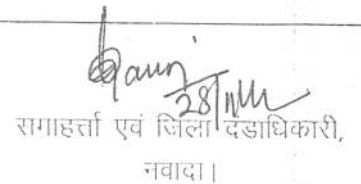 28/11/
समाहर्त्ता एवं जिला दंडाधिकारी,
नवादा।